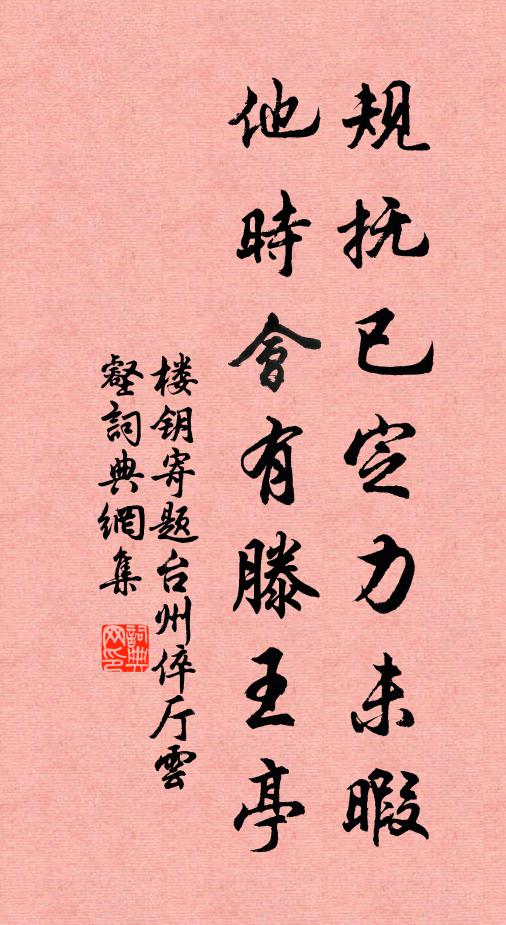 规抚已定力未暇
他時會有滕王亭
楼钥寄题台州倅厅雲
壑詞典網集
詞典
网印